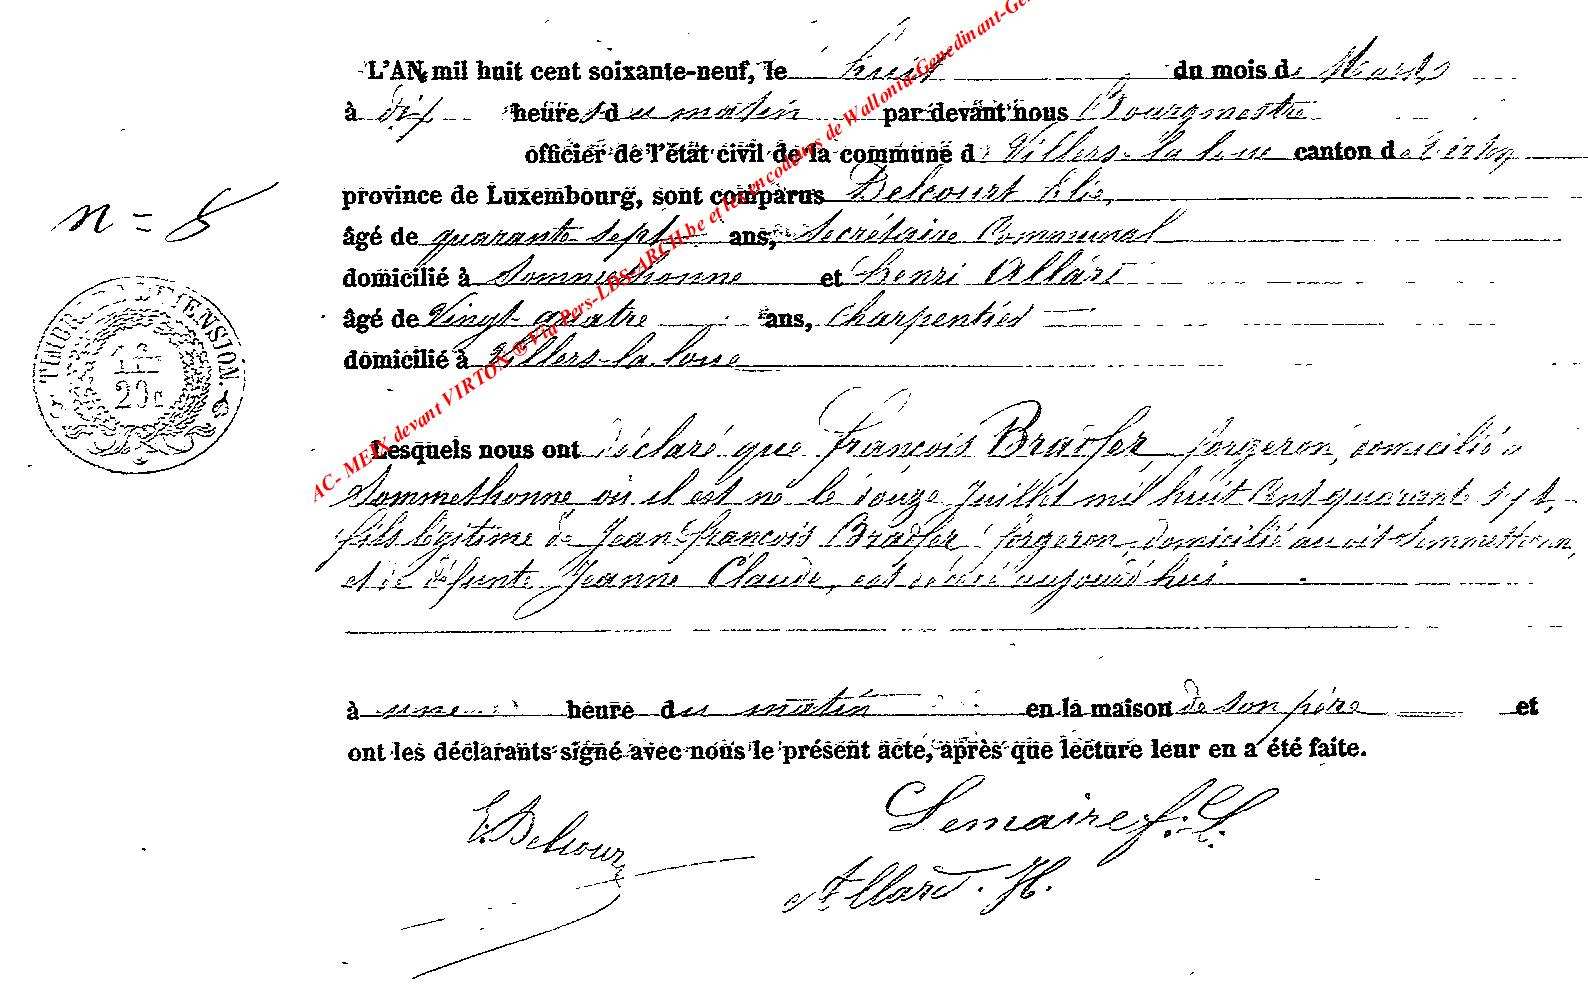 L'AN mil huit cent soixante-neuf, le huit du mois de Mars
à dix heures du matin par devant nous Bourgmestre
officier de l'état civil de la commune de Villers-la-loue canton de Virton
n = 8
province de Luxembourg, sont comparus Delcourt Elie,
âgé de quarante sept ans, Secrétaire Communal
domicilié à Sommethonne et henri Allard
âgé de Vingt quatre ans, charpentier
domicilié à Villers-la-loue
TIMBRE
20c
Lesquels nous ont déclaré que françois Bradfer, forgeron, domicilié à
Sommethonne où il est né le douze Juillet mil huit Cent quarante sept,
fils légitime de Jean-françois Bradfer, forgeron, domicilié au dit Sommethonne,
et de défunte Jeanne Claude, est décédé aujourd'hui
à une heure du matin en la maison de son père et
ont les déclarants signé avec nous le présent acte, après que lecture leur en a été faite.
E. Delcour
Lemaire f. L.
Allard. H.
AC- MEIX devant VIRTON ® Via Pers-LDS-ARCH.be et les encodeurs de Wallonia-Genedinant-Ge